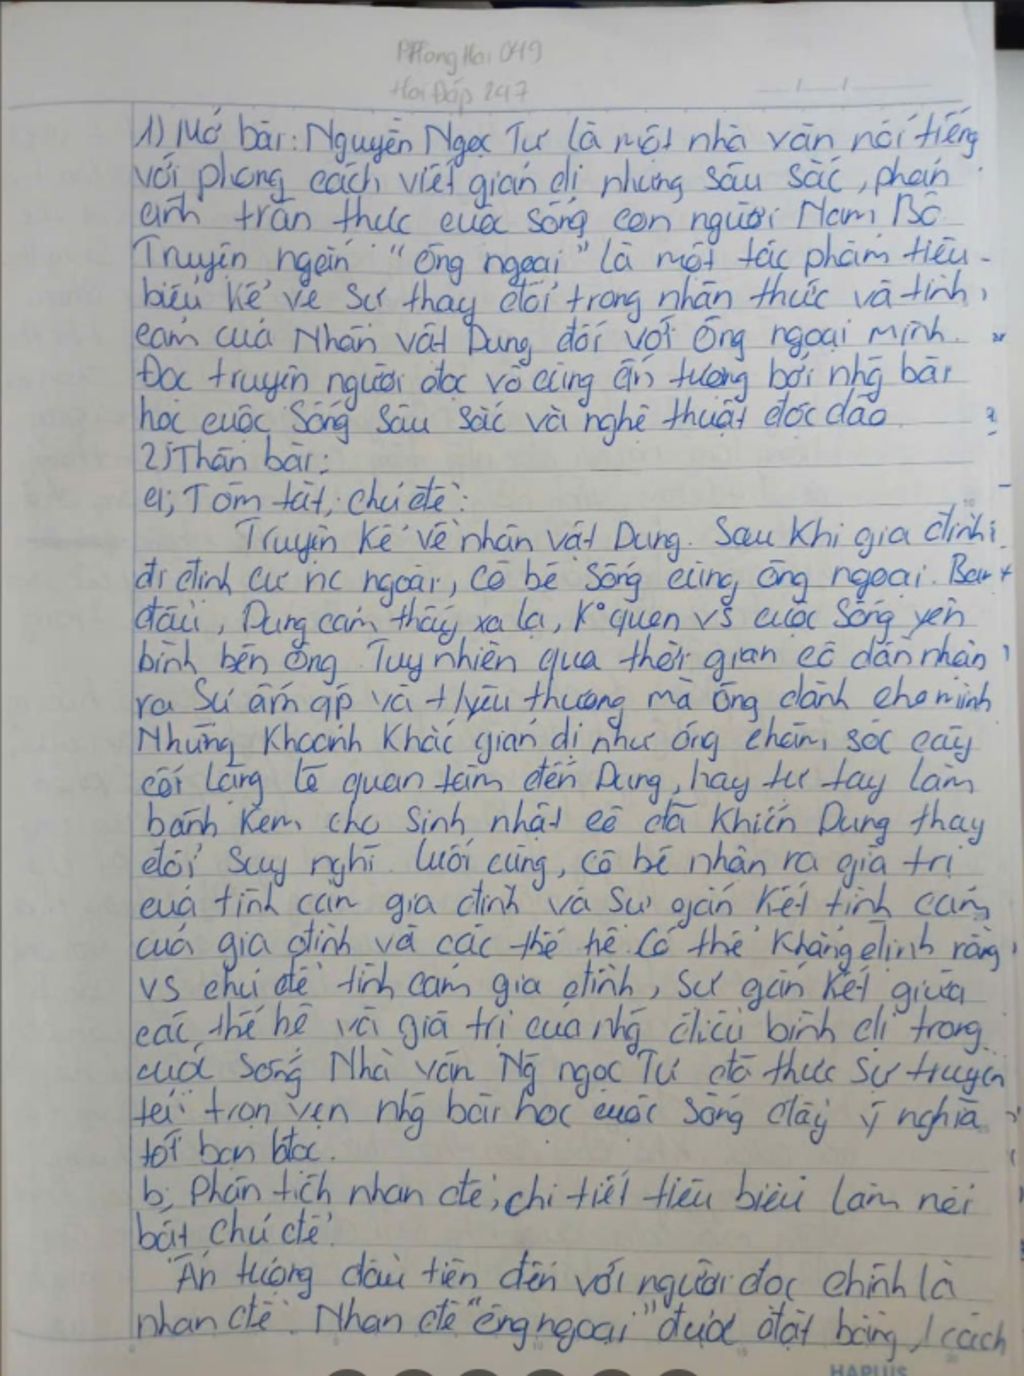 PHong Hoi 049
Hoi Đáp 247
1) Mở bài: Nguyễn Ngọc Tư là một nhà văn nổi tiếng
với phong cách viết giản dị nhưng sâu sắc, phản
ánh trân thực cuộc sống con người Nam Bộ
Truyện ngắn "Ông ngoại" là một tác phẩm tiêu
biểu kể về sự thay đổi trong nhận thức và tình
cảm của Nhân vật Dung đối với Ông ngoại mình.
Đọc truyện người đọc vô cùng ấn tượng bởi nhg bài
học cuộc sống sâu sắc và nghệ thuật độc đáo
2) Thân bài:
a; Tóm tắt, chủ đề:
Truyện kể về nhân vật Dung. Sau khi gia đình
đi định cư nc ngoài, cô bé sống cùng ông ngoại. Ban
đầu, Dung cảm thấy xa lạ, K° quen vs cuộc sống yên
bình bên ông Tuy nhiên qua thời gian cô dần nhận
ra sự ấm áp và t/yêu thương mà ông dành cho mình
Những khoảnh khắc giản dị như ông chăm sóc cây
cối lặng lẽ quan tâm đến Dung, hay tự tay làm
bánh kem cho sinh nhật cô đã khiến Dung thay
đổi suy nghĩ. Cuối cùng, cô bé nhận ra giá trị
của tình cảm gia đình và sự gắn kết tình cảm
của gia đình và các thế hệ. Có thể khẳng định rằng
vs chủ đề tình cảm gia đình, sự gắn kết giữa
các thế hệ và giá trị của nhg điều bình dị trong
cuộc sống Nhà văn Ng ngọc Tư đã thực sự truyền
tải trọn vẹn nhg bài học cuộc sống đầy ý nghĩa
tới bạn đọc.
b; Phân tích nhan đề, chi tiết tiêu biểu làm nổi
bật chủ đề:
Ấn tượng đầu tiên đến với người đọc chính là
nhan đề. Nhan đề "ông ngoại" được đặt bằng 1 cách
HAPLUS